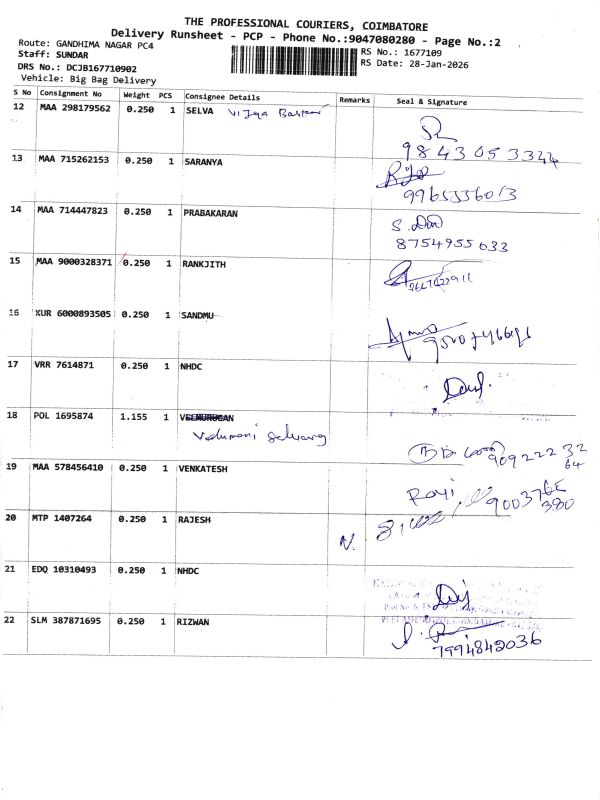 THE PROFESSIONAL COURIERS, COIMBATORE
Delivery Runsheet - PCP - Phone No.:9047080280 - Page No.:2
Route: GANDHIMA NAGAR PC4
Staff: SUNDAR
DRS No.: DCJB167710902
Vehicle: Big Bag Delivery
RS No.: 1677109
RS Date: 28-Jan-2026
S No Consignment No Weight PCS Consignee Details Remarks Seal & Signature
12 MAA 298179562 0.250 1 SELVA Vijya
9843053344
13 MAA 715262153 0.250 1 SARANYA
9965556013
14 MAA 714447823 0.250 1 PRABAKARAN
8754955033
15 MAA 9000328371 0.250 1 RANKJITH
16 KUR 6000893505 0.250 1 SANDMU
17 VRR 7614871 0.250 1 NHDC
18 POL 1695874 1.155 1
Velumoni Selvaraj
909222 32
64
19 MAA 578456410 0.250 1 VENKATESH
Ravi 900376
380
20 MTP 1407264 0.250 1 RAJESH
N.
21 EDQ 10310493 0.250 1 NHDC
22 SLM 387871695 0.250 1 RIZWAN
7994842036